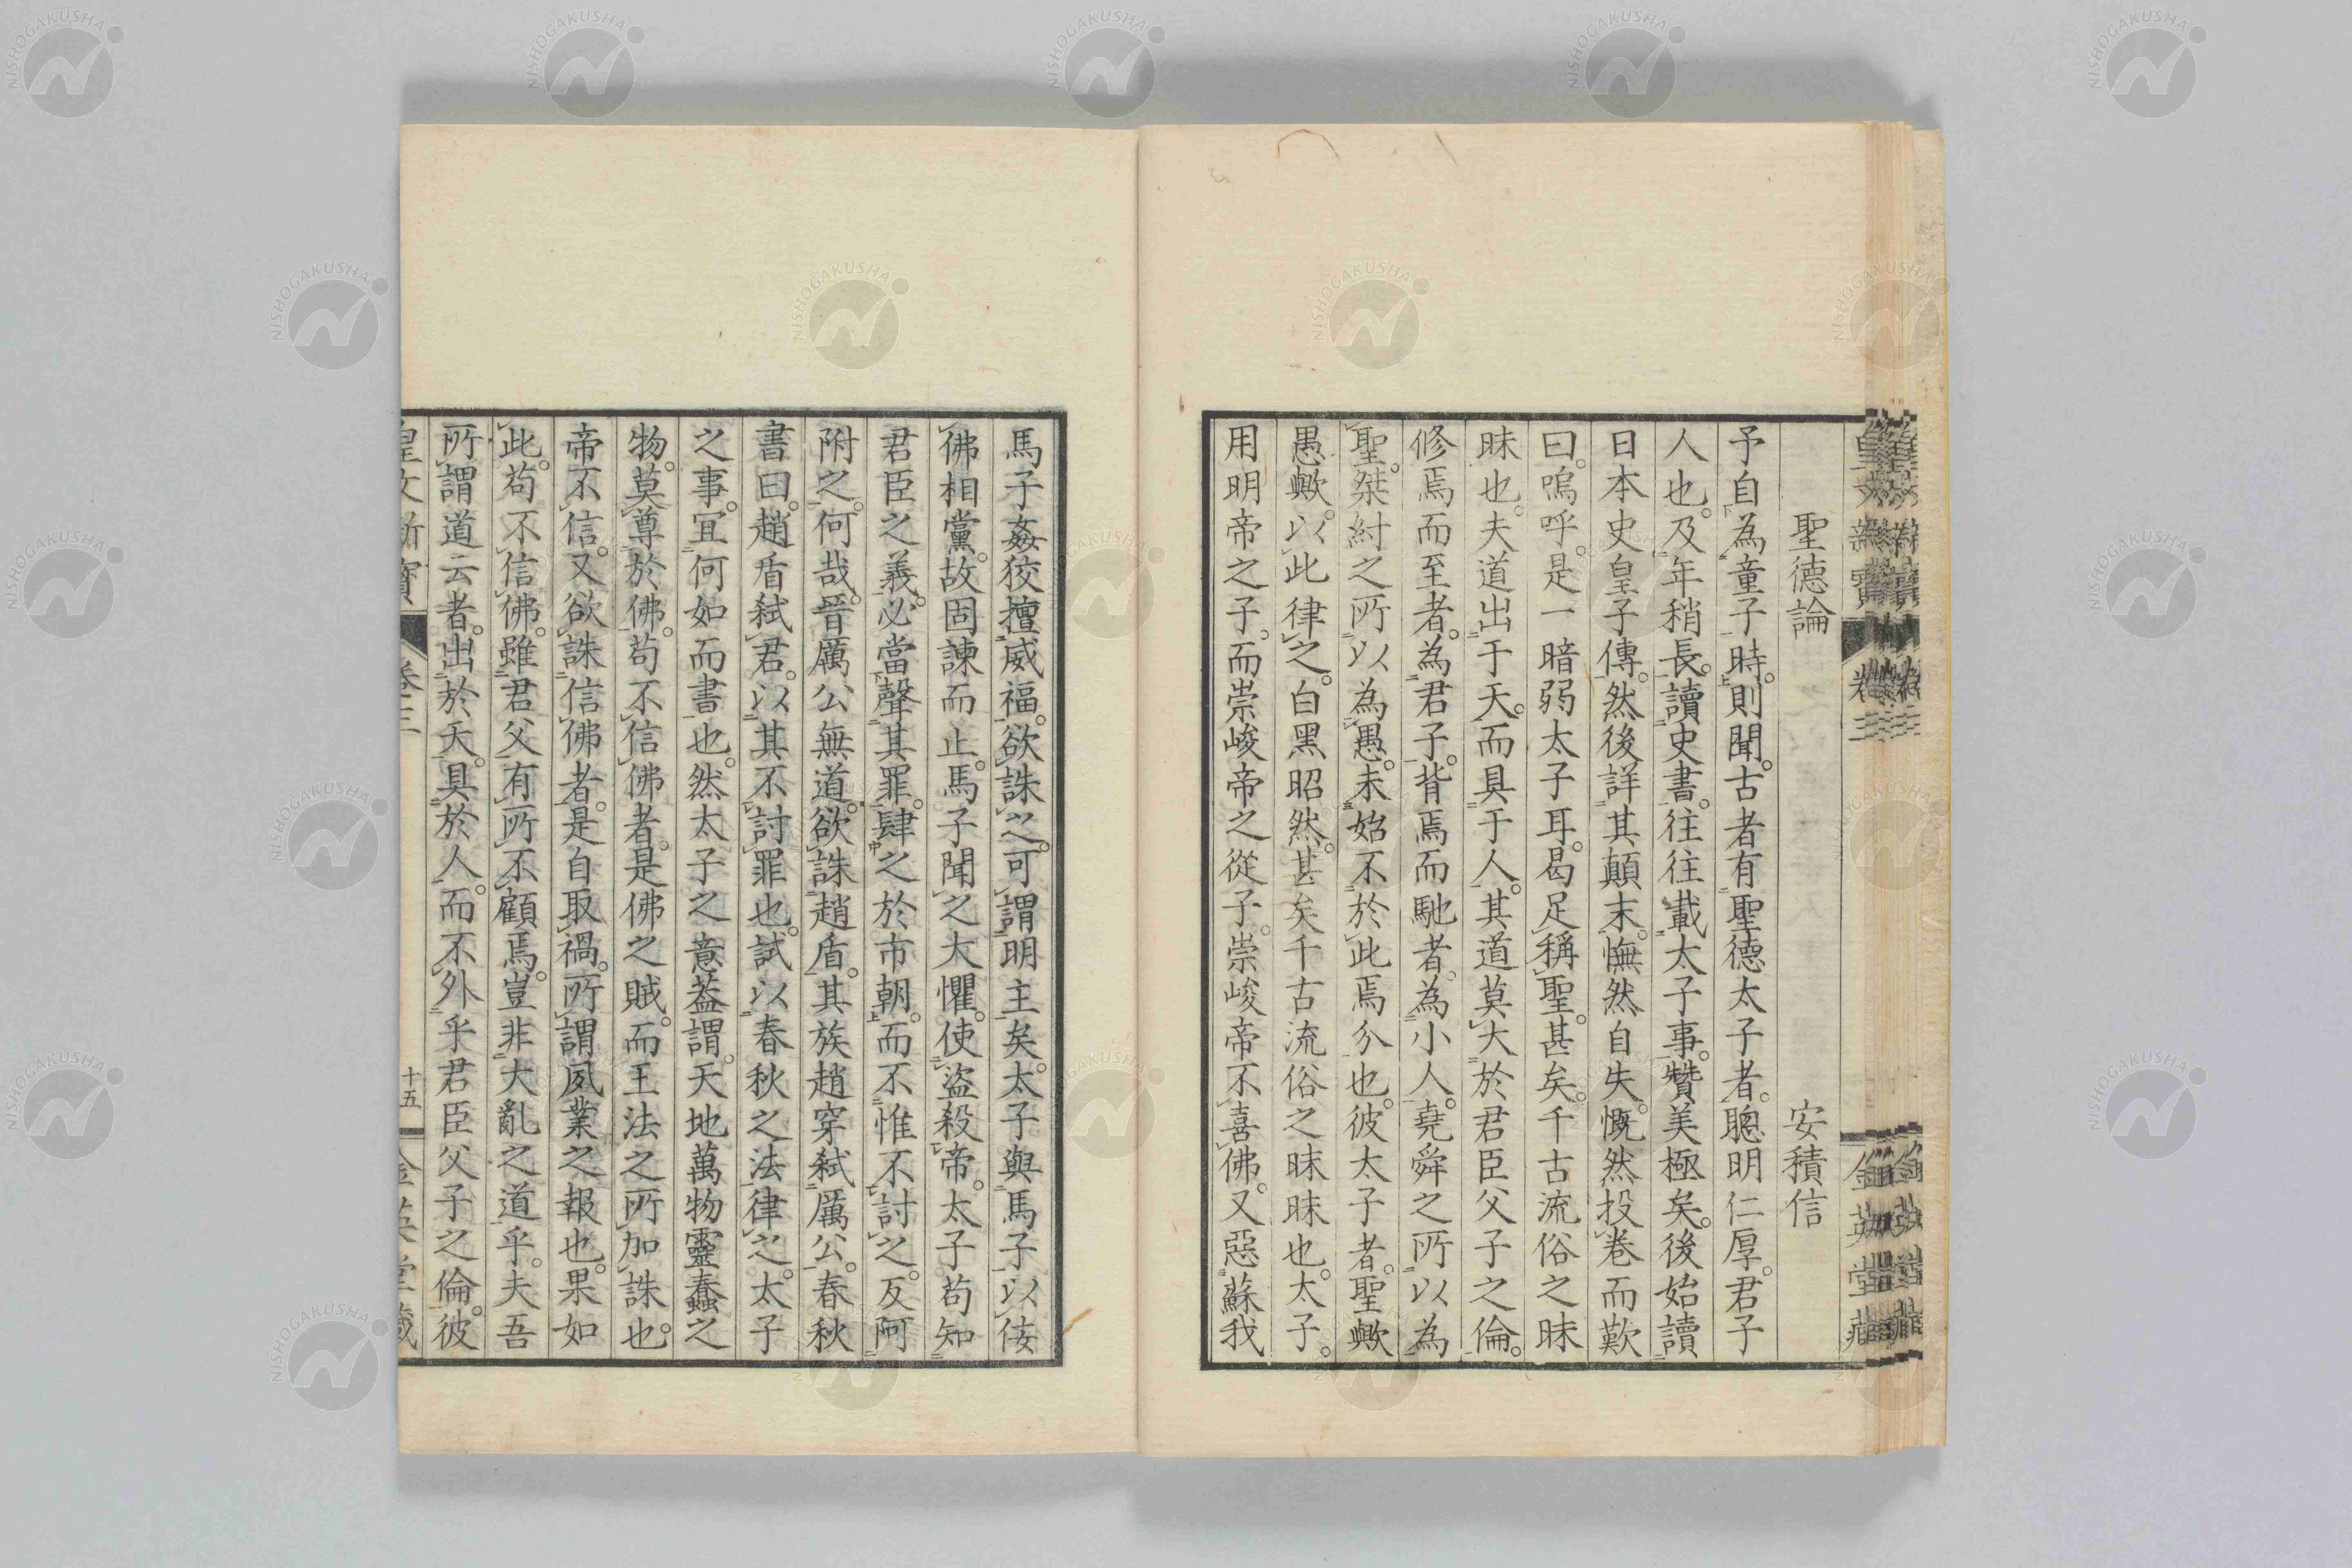 聖德論　安積信
予自為童子時。則聞。古者有聖德太子者。聰明仁厚。君子
人也。及年稍長。讀史書。往往載太子事。贊美極矣。後始讀
日本史皇子傳。然後詳其顛末。憮然自失。慨然投卷而歎
曰。嗚呼。是一暗弱太子耳。曷足稱聖。甚矣。千古流俗之昧
昧也。夫道出于天。而具于人。其道莫大於君臣父子之倫。
修焉而至者。為君子。背焉而馳者。為小人。堯舜之所以為
聖。桀紂之所以為愚。未始不於此焉分也。彼太子者。聖歟
愚歟。以此律之。白黑昭然。甚矣千古流俗之昧昧也。太子。
用明帝之子。而崇峻帝之從子。崇峻帝不喜佛。又惡蘇我
馬子姦狡擅威福。欲誅之。可謂明主矣。太子與馬子以佞
佛相黨。故固諫而止。馬子聞之大懼。使盜殺帝。太子苟知
君臣之義。必當聲其罪。肆之於市朝。而不惟不討之。反阿
附之。何哉。晉厲公無道。欲誅趙盾。其族趙穿弒厲公。春秋
書曰。趙盾弒君。以其不討罪也。試以春秋之法律之。太子
之事。宜何如而書也。然太子之意蓋謂。天地萬物靈蠢之
物。莫尊於佛。苟不信佛者。是佛之賊。而王法之所加誅也。
帝不信。又欲誅信佛者。是自取禍。所謂夙業之報也。果如
此。苟不信佛。雖君父有所不顧焉。豈非大亂之道乎。夫吾
所謂道云者。出於天。具於人。而不外乎君臣父子之倫。彼
卷三
十五
NISHOGAKUSHA